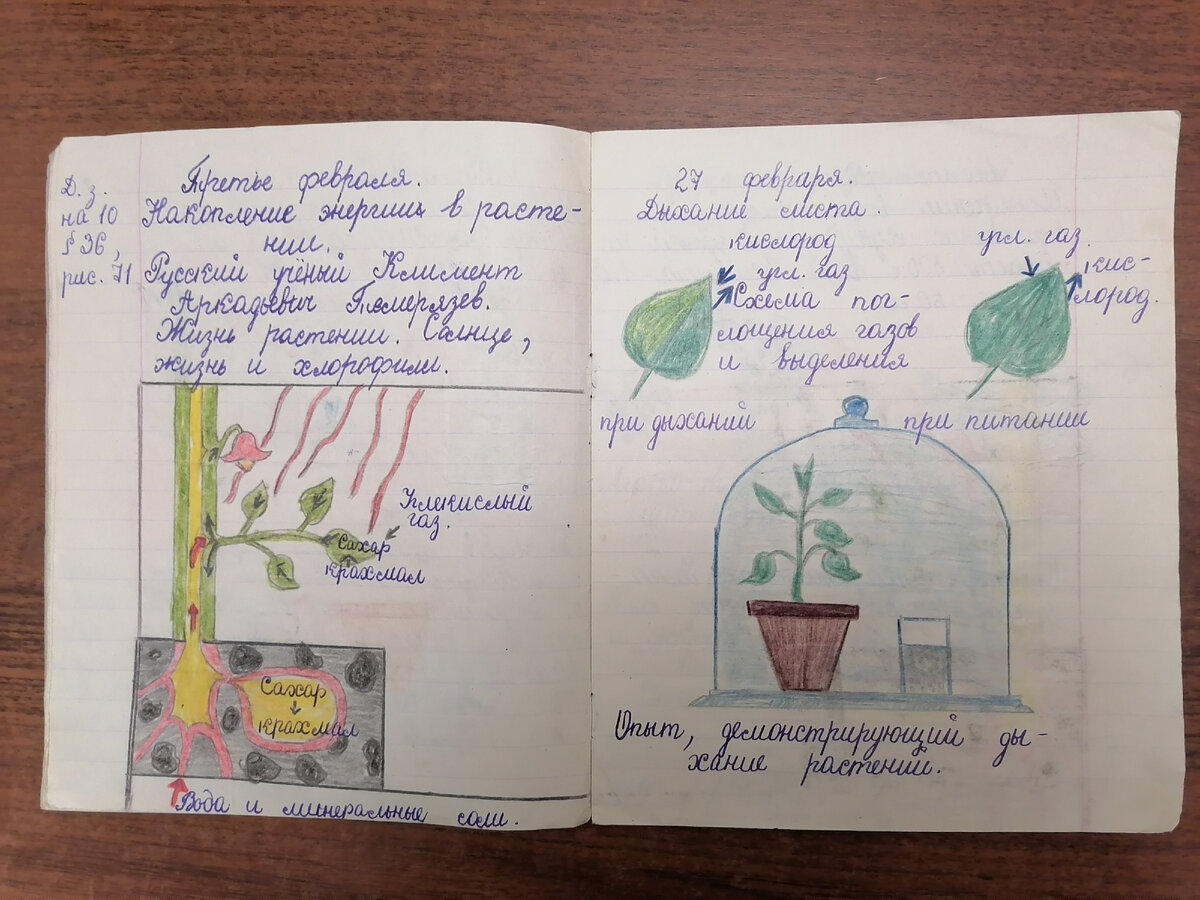 Д.з.
на 10
§ 36,
рис. 71
Третье февраля.
Накопление энергии в расте-
нии.
Русский учёный Климент
Аркадьевич Тимерязев.
Жизнь растении. Солнце,
жизнь и хлорофилл.
Углекислый
газ.
Сахар
крахмал
Сахар
крахмал
Вода и минеральные соли.
27 февраря.
Дыхание листа.
кислород
угл. газ
Схема пог-
лощения газов
и выделения
угл. газ.
кис-
лород.
при дыханий
при питании
Опыт, демонстрирующий ды-
хание растений.